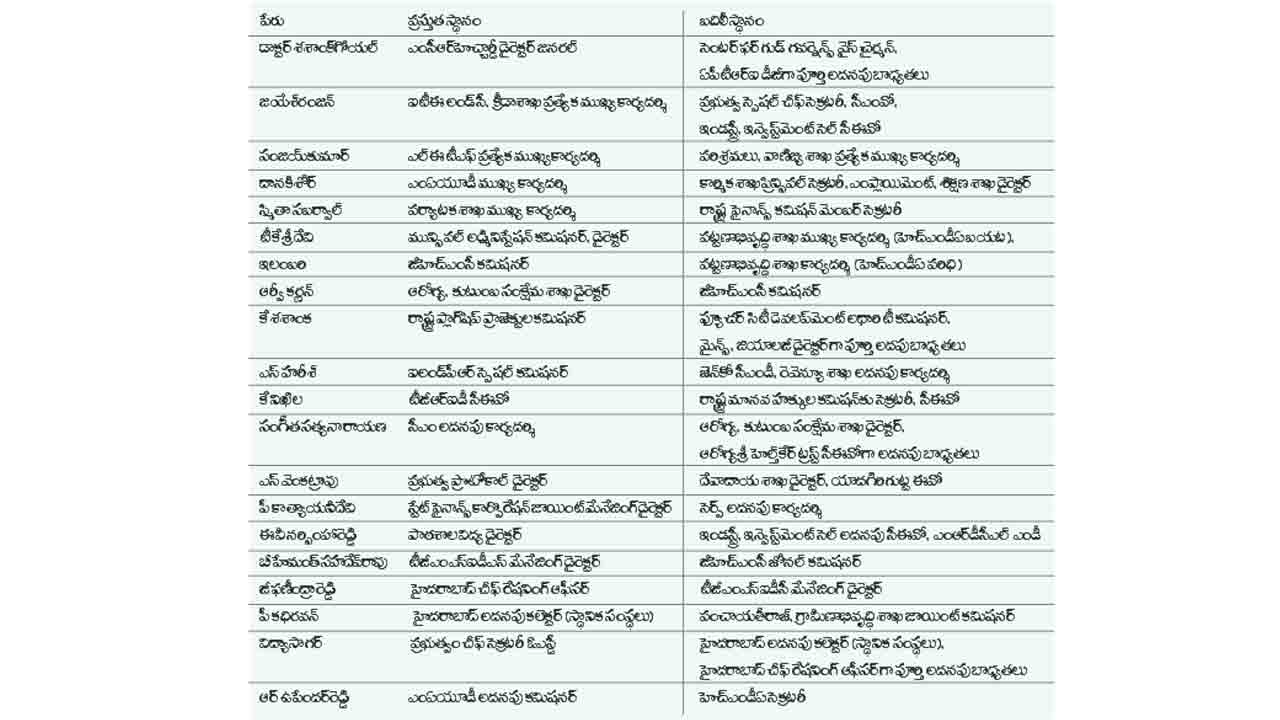 పేరు ప్రస్తుత స్థానం బదిలీస్థానం
డాక్టర్ శశాంక్‌గోయల్ ఎంసీఆర్‌హెచ్చార్డీ డైరెక్టర్ జనరల్ సెంటర్ ఫర్ గుడ్ గవర్నెన్స్ వైస్ చైర్మన్,
ఏపీటీఆర్ఐ డీజీగా పూర్తి అదనపు బాధ్యతలు
జయేశ్‌రంజన్ ఐటీఈ అండ్‌సీ, క్రీడాశాఖ ప్రత్యేక ముఖ్య కార్యదర్శి ప్రభుత్వ స్పెషల్ చీఫ్ సెక్రటరీ, సీఎంవో,
ఇండస్ట్రీ, ఇన్వెస్ట్‌మెంట్ సెల్ సీఈవో
సంజయ్‌కుమార్ ఎల్ఈటీఎఫ్ ప్రత్యేక ముఖ్యకార్యదర్శి పరిశ్రమలు, వాణిజ్య శాఖ ప్రత్యేక ముఖ్య కార్యదర్శి
దానకిశోర్ ఎంఏయూడీ ముఖ్య కార్యదర్శి కార్మిక శాఖ ప్రిన్సిపల్ సెక్రటరీ, ఎంప్లాయిమెంట్, శిక్షణ శాఖ డైరెక్టర్
స్మితా సబర్వాల్ పర్యాటక శాఖ ముఖ్య కార్యదర్శి రాష్ట్ర ఫైనాన్స్ కమిషన్ మెంబర్ సెక్రటరీ
టీకే శ్రీదేవి మున్సిపల్ అడ్మినిస్ట్రేషన్ కమిషనర్, డైరెక్టర్ పట్టణాభివృద్ధి శాఖ ముఖ్య కార్యదర్శి (హెచ్ఎండీఏ బయట),
ఇలంబరి జీహెచ్ఎంసీ కమిషనర్ పట్టణాభివృద్ధి శాఖ కార్యదర్శి (హెచ్ఎండీఏ పరిధి)
ఆర్వీ కర్ణన్ ఆరోగ్య, కుటుంబ సంక్షేమ శాఖ డైరెక్టర్ జీహెచ్ఎంసీ కమిషనర్
కే శశాంక రాష్ట్ర ఫ్లాగ్‌షిప్ ప్రాజెక్టుల కమిషనర్ ఫ్యూచర్ సిటీ డెవలప్‌మెంట్ అథారిటీ కమిషనర్,
మైన్స్, జియాలజీ డైరెక్టర్‌గా పూర్తి అదపు బాధ్యతలు
ఎస్ హరీశ్ ఐఅండ్‌పీఆర్ స్పెషల్ కమిషనర్ జెన్‌కో సీఎండీ, రెవెన్యూ శాఖ అదనపు కార్యదర్శి
కే నిఖిల టీజీఆర్ఐడీ సీఈవో రాష్ట్ర మానవ హక్కుల కమిషన్‌కు సెక్రటరీ, సీఈవో
సంగీత సత్యనారాయణ సీఎం అదనపు కార్యదర్శి ఆరోగ్య, కుటుంబ సంక్షేమ శాఖ డైరెక్టర్,
ఆరోగ్యశ్రీ హెల్త్‌కేర్ ట్రస్ట్ సీఈవోగా అదనపు బాధ్యతలు
ఎస్ వెంకట్రావు ప్రభుత్వ ప్రొటోకాల్ డైరెక్టర్ దేవాదాయ శాఖ డైరెక్టర్, యాదగిరిగుట్ట ఈవో
పీ కాత్యాయనీదేవి స్టేట్ ఫైనాన్స్ కార్పొరేషన్ జాయింట్ మేనేజింగ్ డైరెక్టర్ సెర్ప్ అదనపు కార్యదర్శి
ఈవీ నర్సింహారెడ్డి పాఠశాల విద్య డైరెక్టర్ ఇండస్ట్రీ, ఇన్వెస్ట్‌మెంట్ సెల్ అదనపు సీఈవో, ఎంఆర్‌డీసీఎల్ ఎండీ
బీ హేమంత్ సహదేవ్‌రావు టీజీఎంఎస్ఐడీఎస్ మేనేజింగ్ డైరెక్టర్ జీహెచ్ఎంసీ జోనల్ కమిషనర్
జీ ఫణీంద్రారెడ్డి హైదరాబాద్ చీఫ్ రేషనింగ్ ఆఫీసర్ టీజీఎంఎస్ఐడీసీ మేనేజింగ్ డైరెక్టర్
పీ కధిరవన్ హైదరాబాద్ అదనపు కలెక్టర్ (స్థానిక సంస్థలు) పంచాయతీరాజ్, గ్రామీణాభివృద్ధి శాఖ జాయింట్ కమిషనర్
విద్యాసాగర్ ప్రభుత్వం చీఫ్ సెక్రటరీ ఓఎస్డీ హైదరాబాద్ అదనపు కలెక్టర్ (స్థానిక సంస్థలు),
హైదరాబాద్ చీఫ్ రేషనింగ్ ఆఫీసర్‌గా పూర్తి అదనపు బాధ్యతలు
ఆర్ ఉపేందర్‌రెడ్డి ఎంఏయూడీ అదనపు కమిషనర్ హెచ్ఎండీఏ సెక్రటరీ